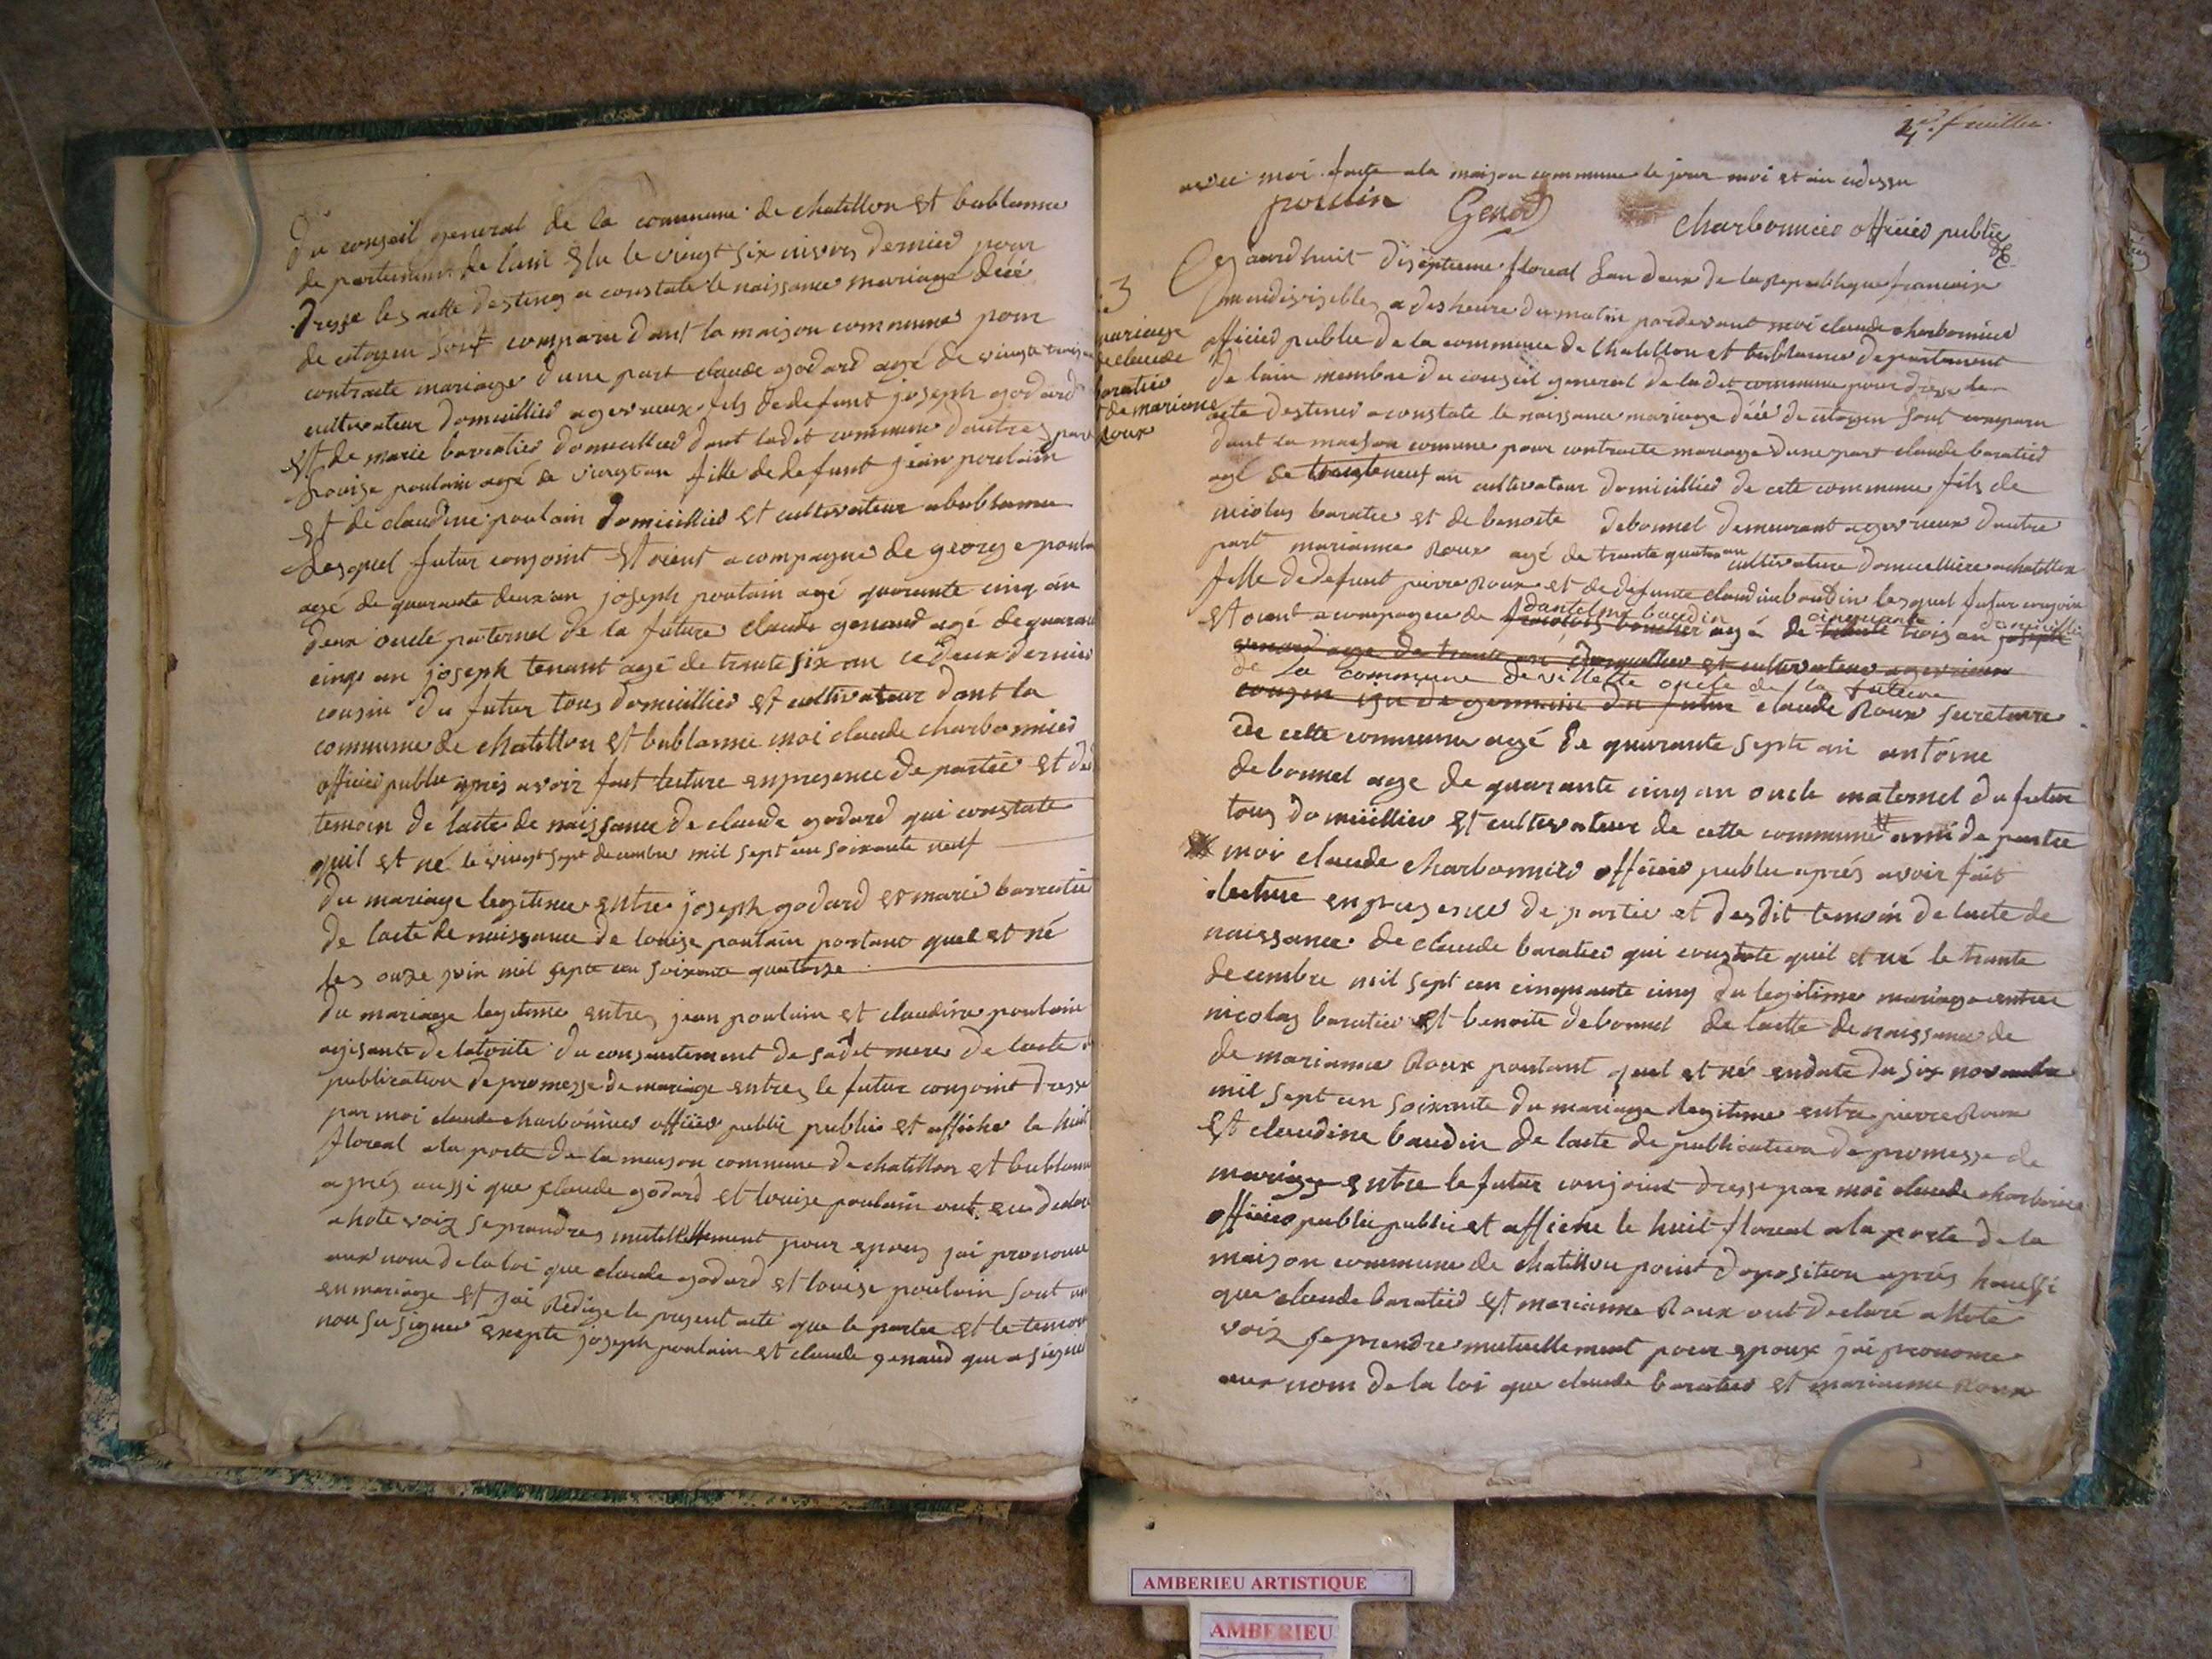 Du conseil general de la commune de chatillon et bublanne
de partement de lain Elu le vingt six nivos dernier pour
Dresse les actte destines a constate le naissance mariage déié
de citoyen sont comparu dant la maison commune pour
contracte mariage d'une part claude godard agé de vingte trois an
cultivateur domicillier a gevrieux fils de defunt joseph godard
et de marie barratier domicillier dant ladit commune d'autres part
Louise poulain agé de vingt an fille de defunt jean poulain
et de claudine poulain domicillier et cultivateur a bublanne
Lesquel futur conjoint etoient acompagne de george poulain
agé de quarante deux an joseph poulain agé quarante cinq an
deux oncle paternel de la future claude genaud agé de quarante
cinq an joseph tenant agé de trante six an ce deux dernier
cousin du futur tous domicillier et cultivateur dant la
commune de chatillon et bublanne moi claude charbonnier
officier public aprés avoir fait lecture en presence de partie et des
temoin de lacte de naissance de claude godard qui constate
quil est né le vingt sept decembre mil sept cen soixante neuf
du mariage legitime entre joseph godard et marie barratier
de lacte de naissance de louise poulain portant quel et né
les onze juin mil septe cen soixante quatorze
du mariage legitime entres jean poulain et claudine poulain
agisante de latorite du consantement de sadit mere de lacte de
publication de promesse de mariage entres le futur conjoint dresse
par moi claude charbonnier officier public publié et affiche le huit
floreal a la porte de la maison commune de chatillon et bublanne
aprés aussi que claude godard et louise poulain ont eu declare
a hote voix se prendres mutellement pour epoux jai prononce
aux nom de la loi que claude godard et louise poulain sont uni
en mariage et jai rédige le present acte que le partie et le temoin
non su signer exepte joseph poulain et claude genaud qui a signé
4e. feuillet
avec moi faite a la maison commune le jour moi et an cidessu
poulin Genod
charbonnier officier public
3
mariage
de claude
baratier
et de marianne
Roux
Ce jaurdhuit diseptieme floreal Lan deux de la Republique francaise
un indivisibles a des heure du matin pardevant moi claude charbonnier
officier public de la commune de Chatillon et bublanne departement
de lain membre du conseil general de ladit commune pour dresse le
acte destiner a constate le naissance mariage déié de citoyen sont comparu
dant la maison comune pour contracte mariage d'une part claude baratier
agé de trenteneuf an cultivateur domicillier de cete commune fils de
nicolas baratie et de benoite debonnel demeurant a gevrieux d'autre
part marianne Roux agé de trante quatre an cultivature domicilliere a chatillon
fille de defunt pierre Roux et de defunte claudine baudin lesquel futur conjoin
etoient acompagnee de francois boucher agé de trante trois an joseph
dantelme baudin cinquante domicillié
genard age de trante an domicillier et cultivateur a gevrieux
de La commune de villette oncle de la future
cousin isu de germain du futur claude Roux secretaire
de cette commune agé de quarante septe an antoine
debonnel age de quarante cinq an oncle maternel du futur
tous domicillier et cultivateur de cette commune # ami de partie
moi claude charbonnier officier public aprés avoir fait
lecture en presence de partie et desdit temoin de lacte de
naissance de claude baratier qui constate quil et né le trante
decembre mil sept cen cinquante cinq du legitime mariage entre
nicolas baratier et benoite debonnel de lactte de naissance de
de marianne Roux portant quel et né endate du six novembre
mil sept cen soixante du mariage legitime entre pierre Roux
et claudine baudin de lacte de publication de promesse de
mariage entre le futur conjoint dresse par moi claude charbonier
officier public publié et affiche le huit floreal a la porte de la
maison commune de chatillon point doposition aprés haussi
que claude baratier et marianne Roux ont declaré a hote
voix se prendre mutuellement pour epoux jai prononce
aux nom de la loi que claude baratier et marianne Roux
AMBERIEU ARTISTIQUE
AMBERIEU